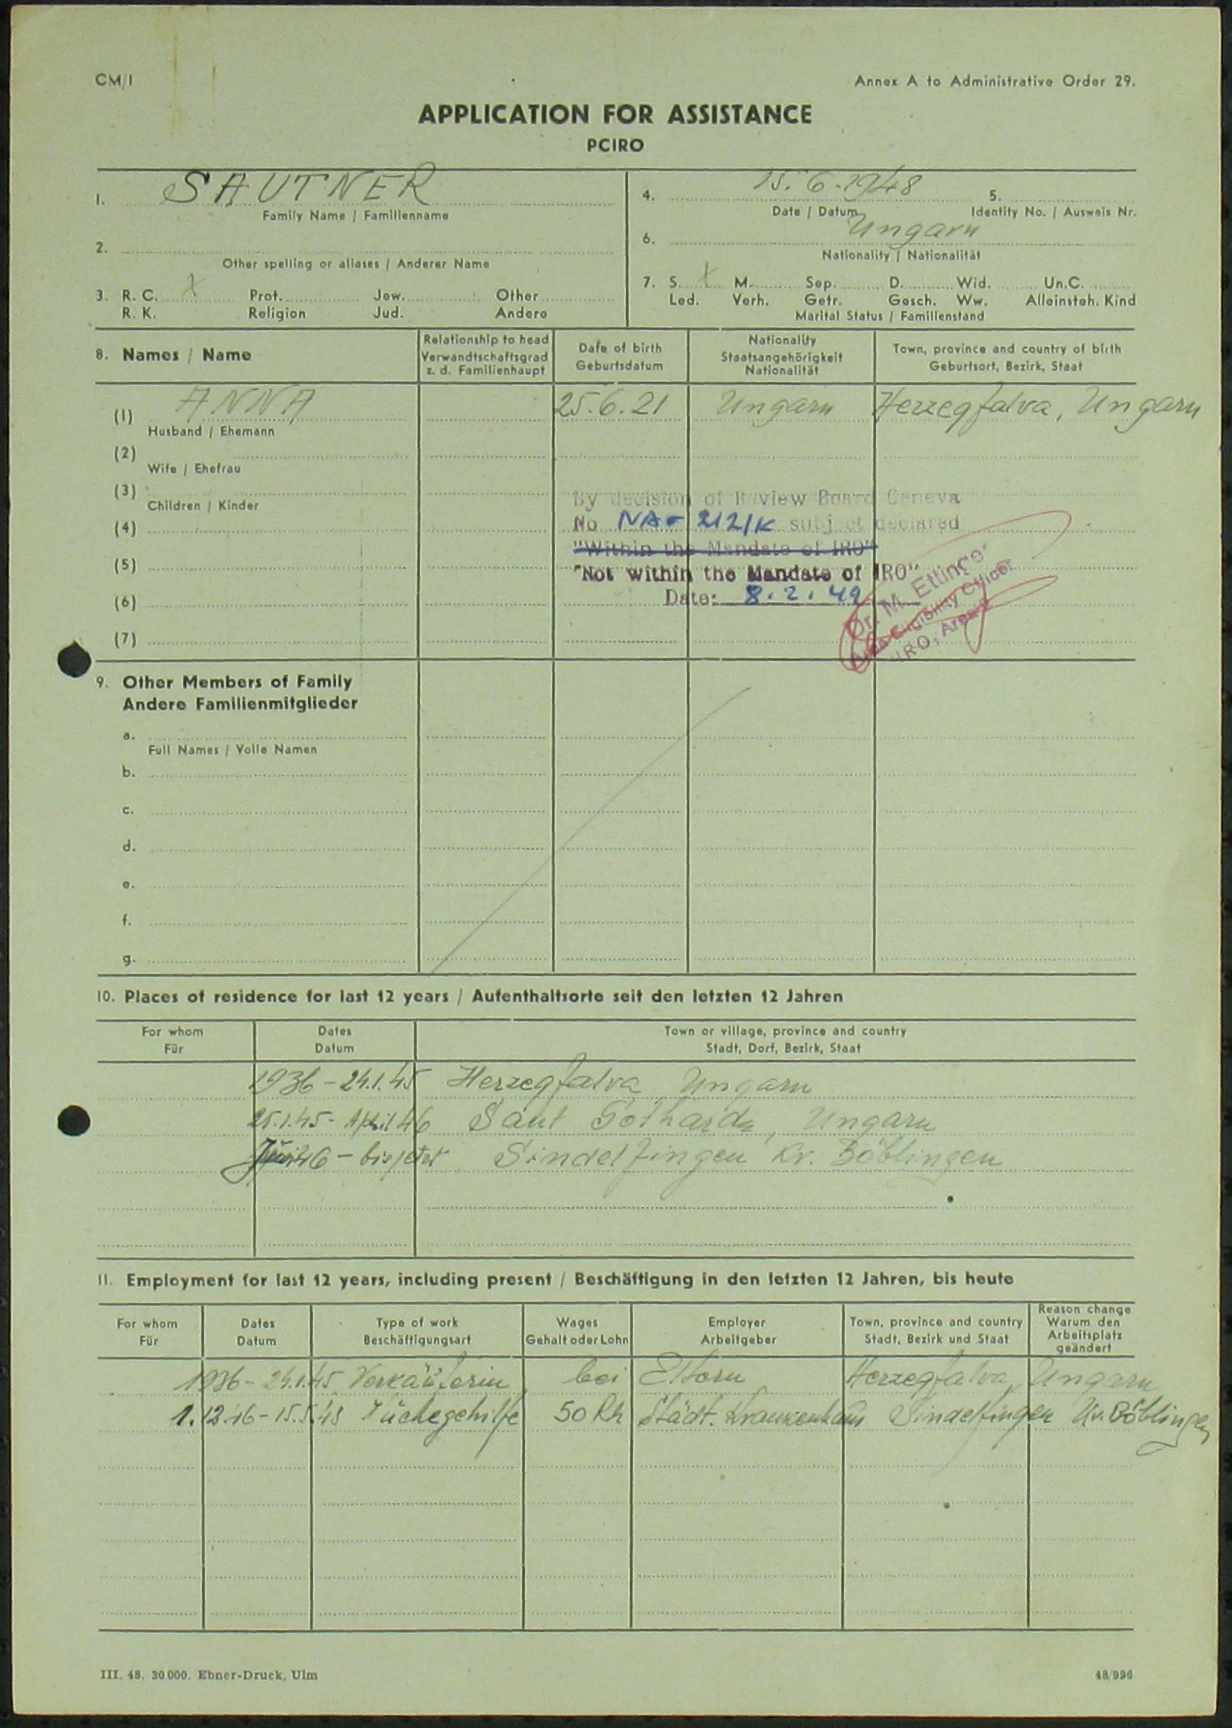 CM/I
Annex A to Administrative Order 29.
APPLICATION FOR ASSISTANCE
PCIRO
1. SAUTNER
Family Name / Familienname
2.
Other spelling or aliases / Anderer Name
3. R. C. X Prot. Jew. Other
R. K. Religion Jud. Andere
4. 15.6.1948 5.
Date / Datum Identity No. / Ausweis Nr.
6. Ungarn
Nationality / Nationalität
7. S. X M. Sep. D. Wid. Un.C.
Led. Verh. Getr. Gesch. Ww. Alleinsteh. Kind
Marital Status / Familienstand
8. Names / Name
Relationship to head
Verwandtschaftsgrad
z. d. Familienhaupt
Date of birth
Geburtsdatum
Nationality
Staatsangehörigkeit
Nationalität
Town, province and country of birth
Geburtsort, Bezirk, Staat
(1) ANNA 25.6.21 Ungarn Herzegfalva, Ungarn
Husband / Ehemann
(2)
Wife / Ehefrau
(3)
Children / Kinder
(4)
(5)
(6)
(7)
By decision of Review Board Geneva
No NA- 212/K subject declared
"Within the Mandate of IRO"
"Not within the Mandate of IRO"
Date: 8.2.49
Dr. M. Ettinger
Area Eligibility Officer
IRO, Area
9. Other Members of Family
Andere Familienmitglieder
a.
Full Names / Volle Namen
b.
c.
d.
e.
f.
g.
10. Places of residence for last 12 years / Aufenthaltsorte seit den letzten 12 Jahren
For whom
Für
Dates
Datum
Town or village, province and country
Stadt, Dorf, Bezirk, Staat
1936 - 24.1.45 Herzegfalva Ungarn
25.1.45 - April 46 Sant Gothards, Ungarn
46 - bis jetzt Sindelfingen Kr. Böblingen
11. Employment for last 12 years, including present / Beschäftigung in den letzten 12 Jahren, bis heute
For whom
Für
Dates
Datum
Type of work
Beschäftigungsart
Wages
Gehalt oder Lohn
Employer
Arbeitgeber
Town, province and country
Stadt, Bezirk und Staat
Reason change
Warum den
Arbeitsplatz
geändert
1936 - 24.1.45 Verkäuferin bei Eltern Herzegfalva, Ungarn
1.12.46 - 15.5.48 Küchegehilfe 50 Rh Städt. Krankenhaus Sindelfingen Kr. Böblingen
III. 48. 30000. Ebner-Druck, Ulm
48/996